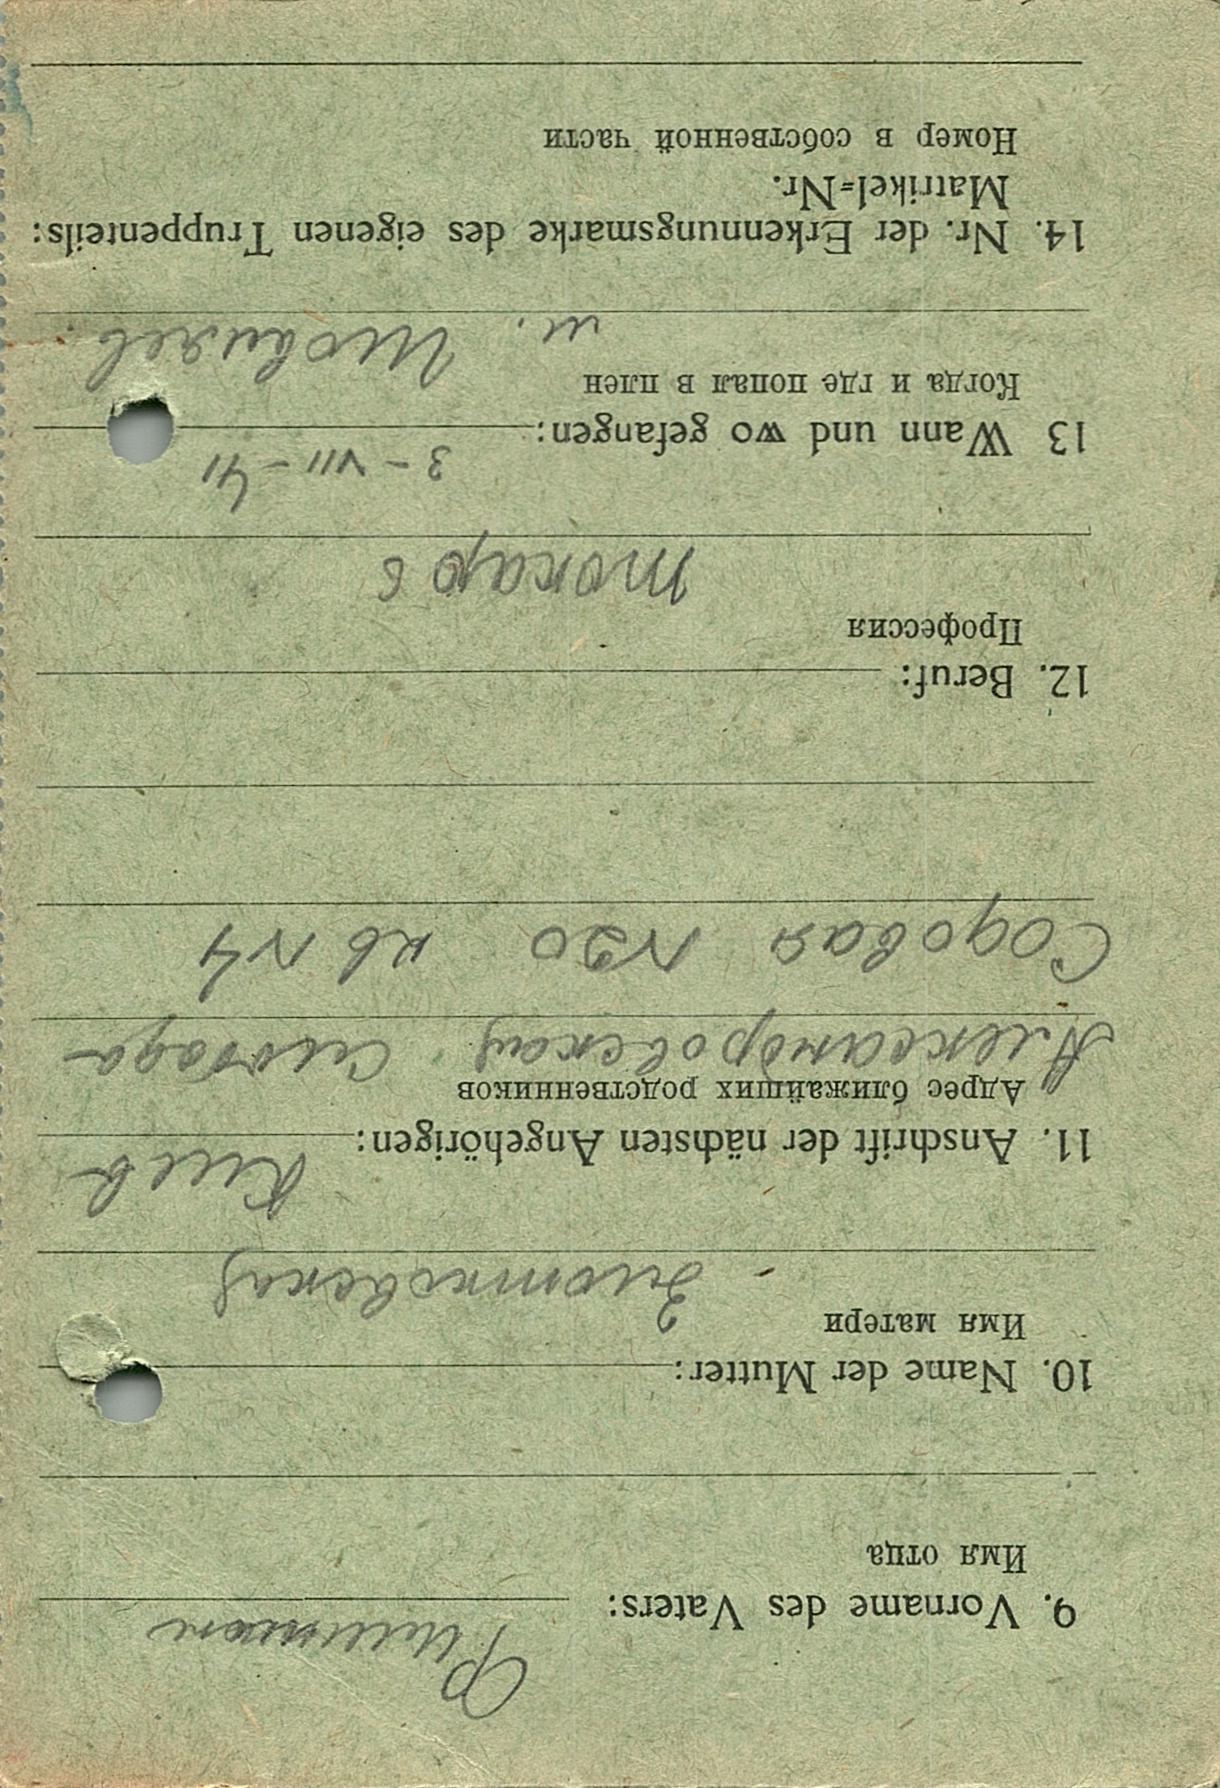 9. Vorname des Vaters: Филимон
Имя отца
10. Name der Mutter:
Имя матери
Киев
11. Anschrift der nächsten Angehörigen:
Адрес ближайших родственников
Александровская слобода
Садовая N20 кв N4
12. Beruf:
Профессия
токарь
3-VII-41
13 Wann und wo gefangen:
Когда и где попал в плен
м.
14. Nr. der Erkennungsmarke des eigenen Truppenteils:
Matrikel=Nr.
Номер в собственной части